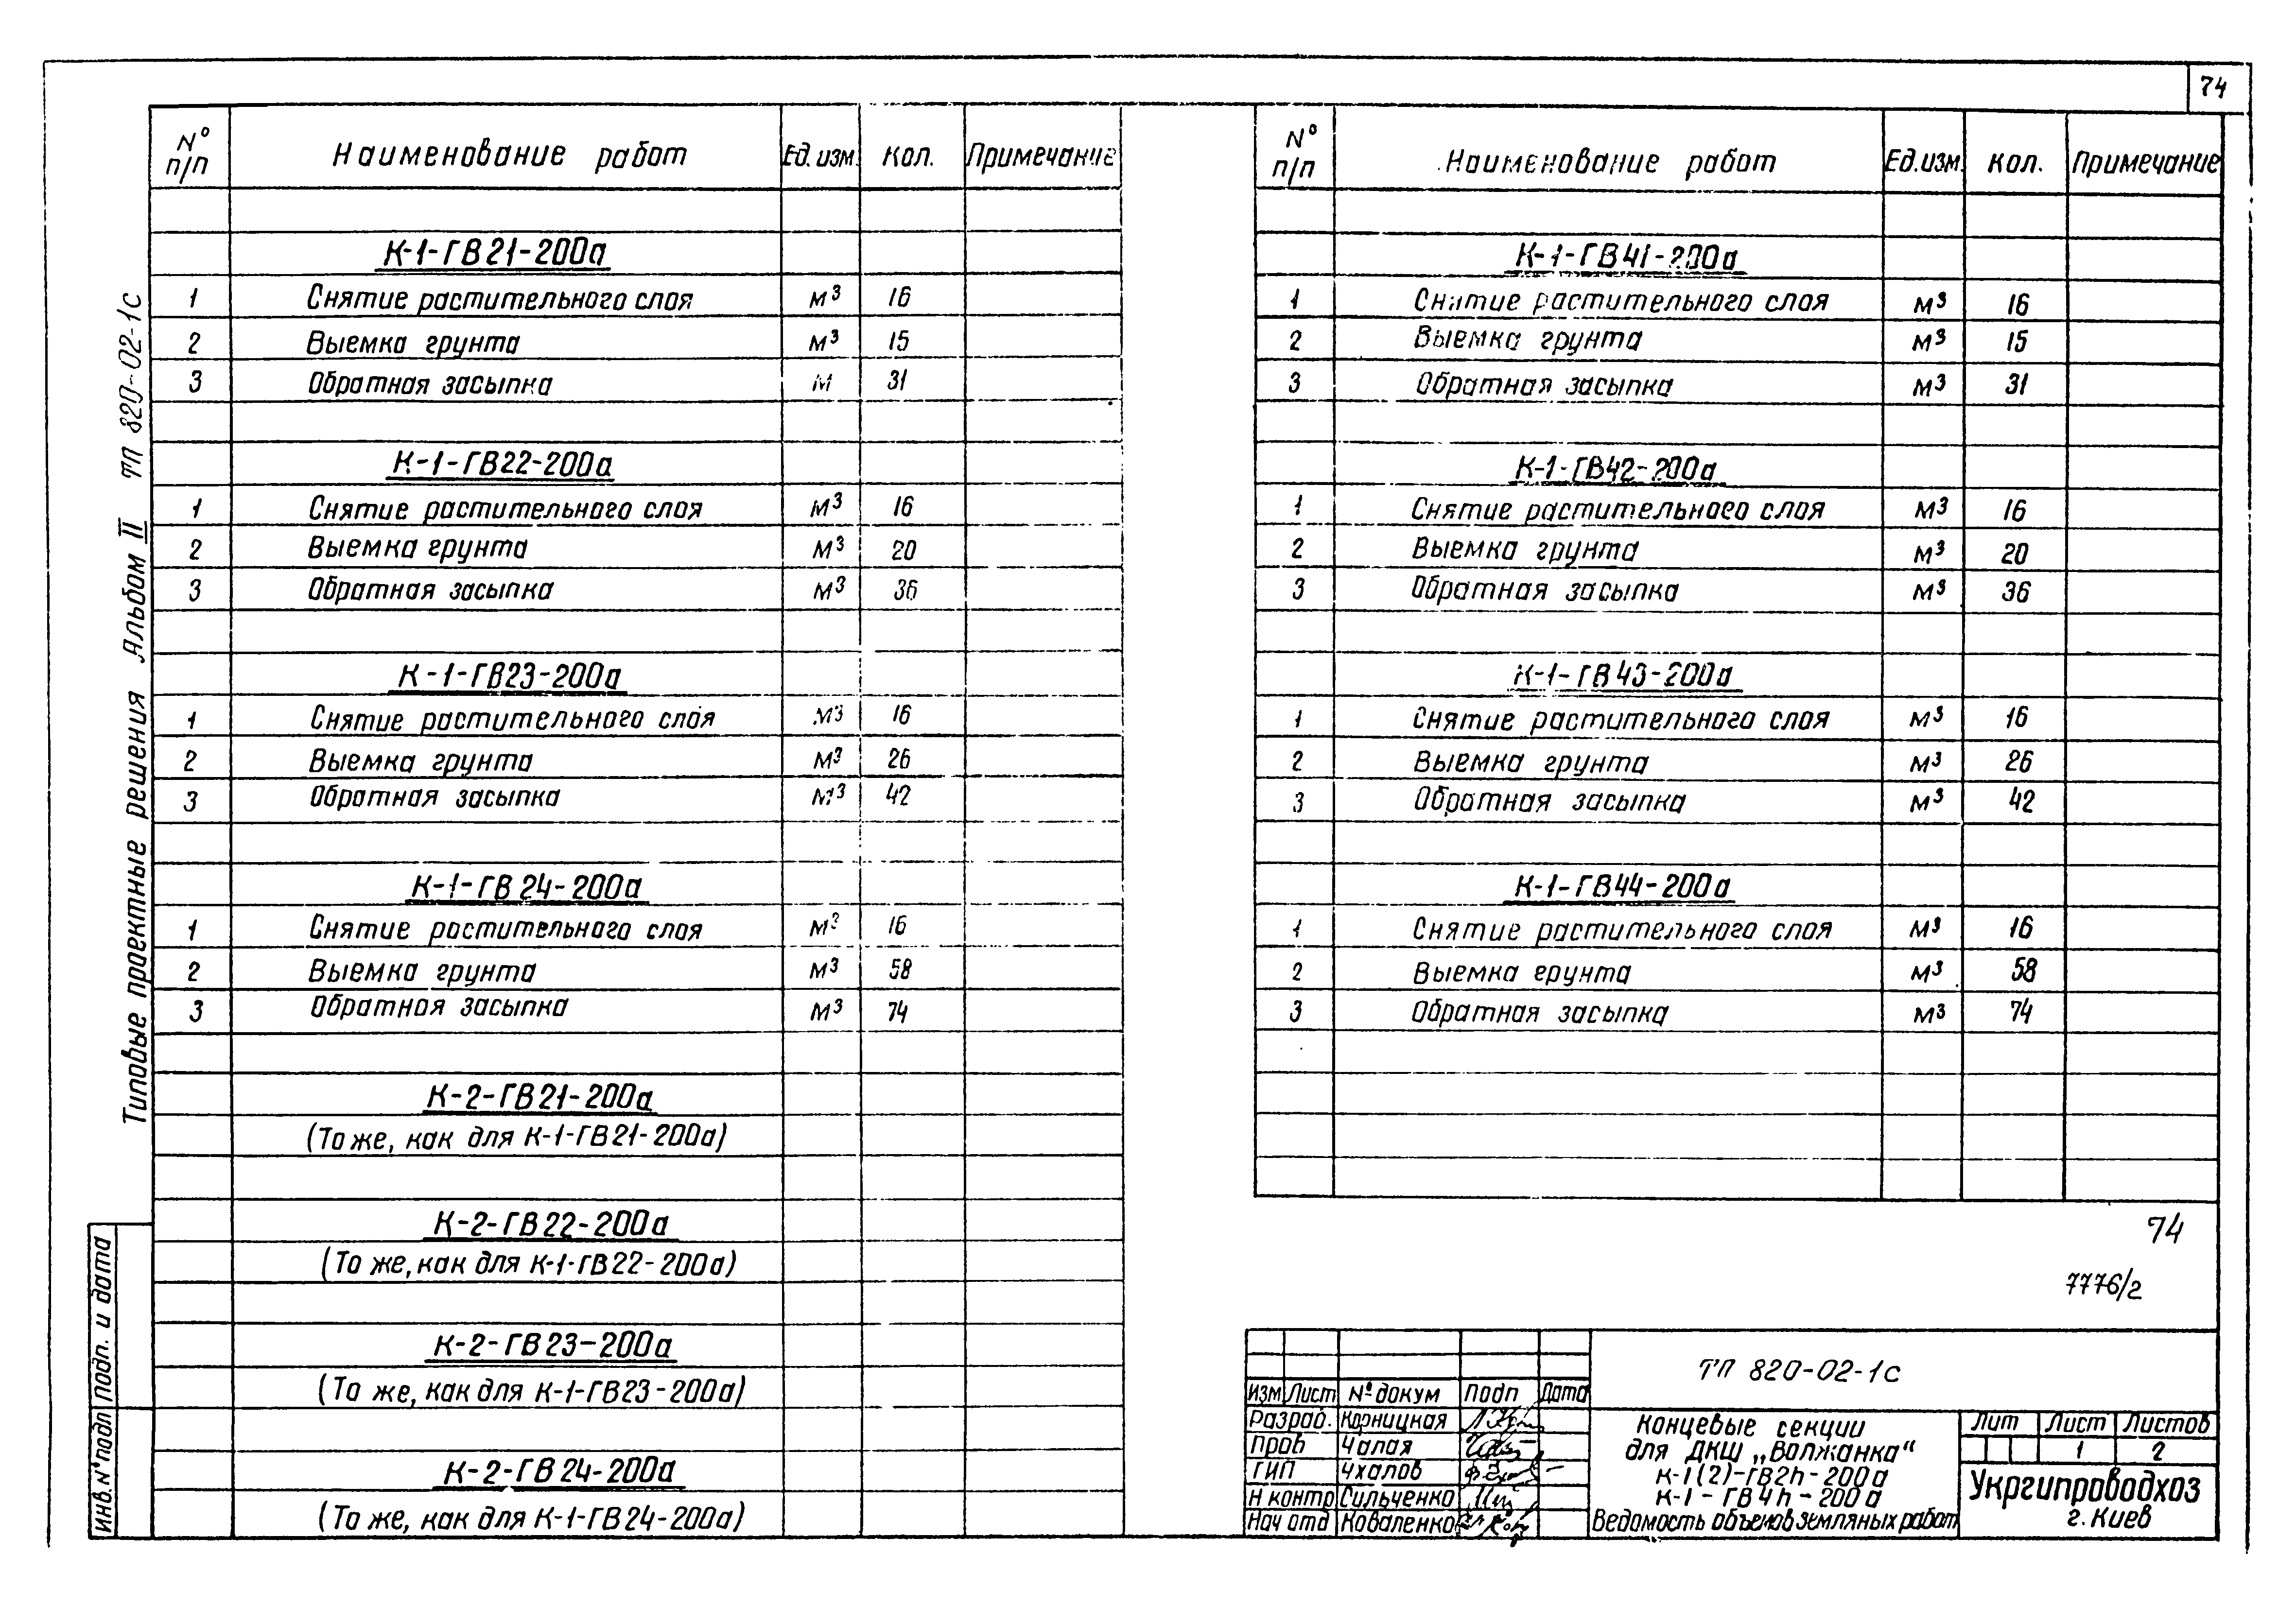 74
Типовые проектные решения Альбом II ТП 820-02-1С
Инв.№ подл Подп. и дата
№ п/п Наименование работ Ед.изм. Кол. Примечание
К-1-ГВ21-200а
1 Снятие растительного слоя м³ 16
2 Выемка грунта м³ 15
3 Обратная засыпка м 31
К-1-ГВ22-200а
1 Снятие растительного слоя м³ 16
2 Выемка грунта м³ 20
3 Обратная засыпка м³ 36
К-1-ГВ23-200а
1 Снятие растительного слоя м³ 16
2 Выемка грунта м³ 26
3 Обратная засыпка м³ 42
К-1-ГВ24-200а
1 Снятие растительного слоя м³ 16
2 Выемка грунта м³ 58
3 Обратная засыпка м³ 74
К-2-ГВ21-200а
(То же, как для К-1-ГВ21-200а)
К-2-ГВ22-200а
(То же, как для К-1-ГВ22-200а)
К-2-ГВ23-200а
(То же, как для К-1-ГВ23-200а)
К-2-ГВ24-200а
(То же, как для К-1-ГВ24-200а)
№ п/п Наименование работ Ед.изм. Кол. Примечание
К-1-ГВ41-200а
1 Снятие растительного слоя м³ 16
2 Выемка грунта м³ 15
3 Обратная засыпка м³ 31
К-1-ГВ42-200а
1 Снятие растительного слоя м³ 16
2 Выемка грунта м³ 20
3 Обратная засыпка м³ 36
К-1-ГВ43-200а
1 Снятие растительного слоя м³ 16
2 Выемка грунта м³ 26
3 Обратная засыпка м³ 42
К-1-ГВ44-200а
1 Снятие растительного слоя м³ 16
2 Выемка грунта м³ 58
3 Обратная засыпка м³ 74
74
7776/2
Изм Лист № докум Подп Дата
Разраб. Корницкая
Пров Чалая
ГИП Чхалов
Н контр Сильченко
Нач отд Коваленко
ТП 820-02-1С
Концевые секции
для ДКШ „Волжанка“
К-1(2)-ГВ2h-200а
К-1-ГВ4h-200а
Ведомость объемов земляных работ
Лит Лист Листов
1 2
Укргипроводхоз
г. Киев